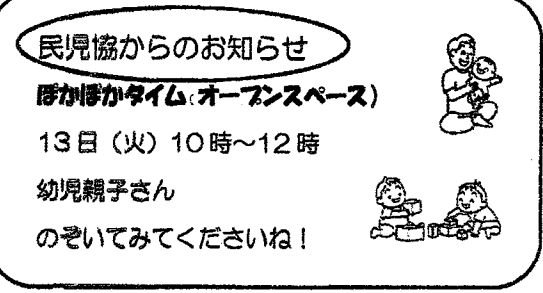 民児協からのお知らせ
ぽかぽかタイム(オープンスペース)
13日（火）10時～12時
幼児親子さん
のぞいてみてくださいね！